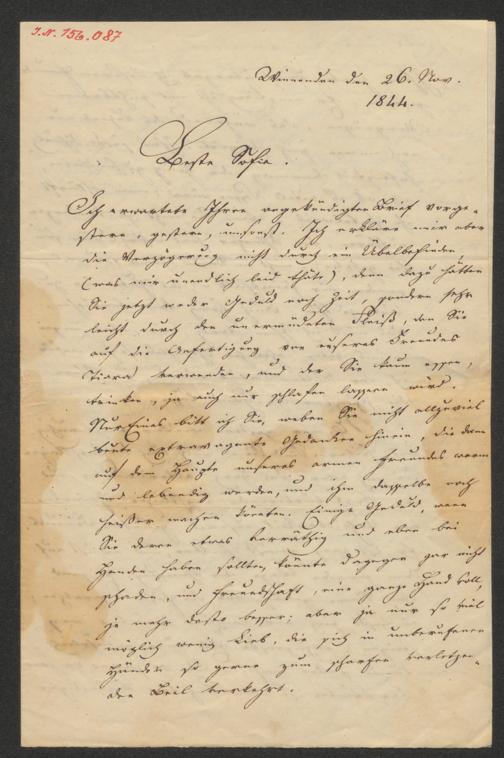 J.N. 156.087
Winnenden den 26. Nov.
1844.
Beste Sofie.
Ich erwartete Ihren angekündigten Brief vorge-
stern, gestern, umsonst. Ich erkläre mir aber
die Verzögerung nicht durch ein Übelbefinden
(was mir unendlich leid thäte), denn dazu hätten
Sie jetzt weder Geduld noch Zeit, sondern sehr
leicht durch den unermüdeten Fleiß, den Sie
auf die Anfertigung von unseres Freundes
Tiara verwenden, und der Sie kaum essen,
trinken, ja auch nur schlafen lassen wird.
Nur Eines bitt ich Sie, weben Sie nicht allzuviel
bunte extravagante Gedanken hinein, die dann
auf dem Haupte unseres armen Freundes warm
und lebendig werden, und ihm dasselbe noch
heißer machen könnten. Einige Geduld, wenn
Sie deren etwas vorräthig und eben bei
Handen haben sollten, könnte dagegen gar nicht
schaden, und Freundschaft, eine ganze Hand voll,
je mehr desto besser; aber ja nur so viel
möglich wenig Lieb, die sich in unberufenen
Händen so gerne zum scharfen verletzen-
den Beil verkehrt.